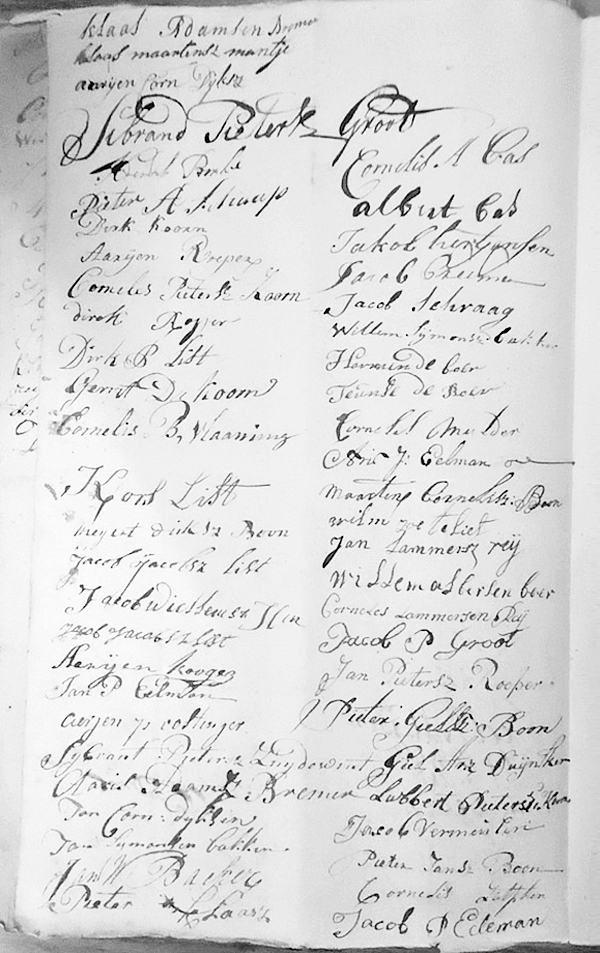 Klaas Adamsen Bremer
klaas maartensz mantje
aarijen Corn Dijksz
Sibrand Pieterk Groot
Pieter A Schaap
Dirk Koorn
Aarijen Roeper
Cornelis Pietersz Koorn
dirck
Dirk P List
Gerrit D Koorn
Cornelis B Vlaaning
Kors List
meyert dirksz Boon
Jacob Jacobsz List
Jacob Willemsz
Jacob Jacobsz List
Aarijen Kooger
Jan P Eelman
aerjen oostinger
Sijbrant Pietersz Zuydewint
Claas Adaamsz Bremer
Jan Corn: dijksen
Jan Symonsen bakker
Jan W Bakker
Pieter Klaasz
Cornelis A Bas
albert bas
Jakob
Jacob
Jacob Schraag
Willem Sijmonsz bakker
Harmen de boer
Teunis de Boer
Cornelis Mulder
Aris J: Eelman
Maarten Cornelisz: Boon
wilm zoetelief
Jan Lammersz reij
Willem Albersen boer
Cornelis Lammersen Reij
Jacob P Groot
Jan Pietersz Roeper
Pieter: Gielsz: Boon
Giel Arz Duijnker
Lubbert Pietersz: Koorn
Jacob Vermeulen
Pieter Jansz Boon
Cornelis Zutphen
Jacob P Eelman